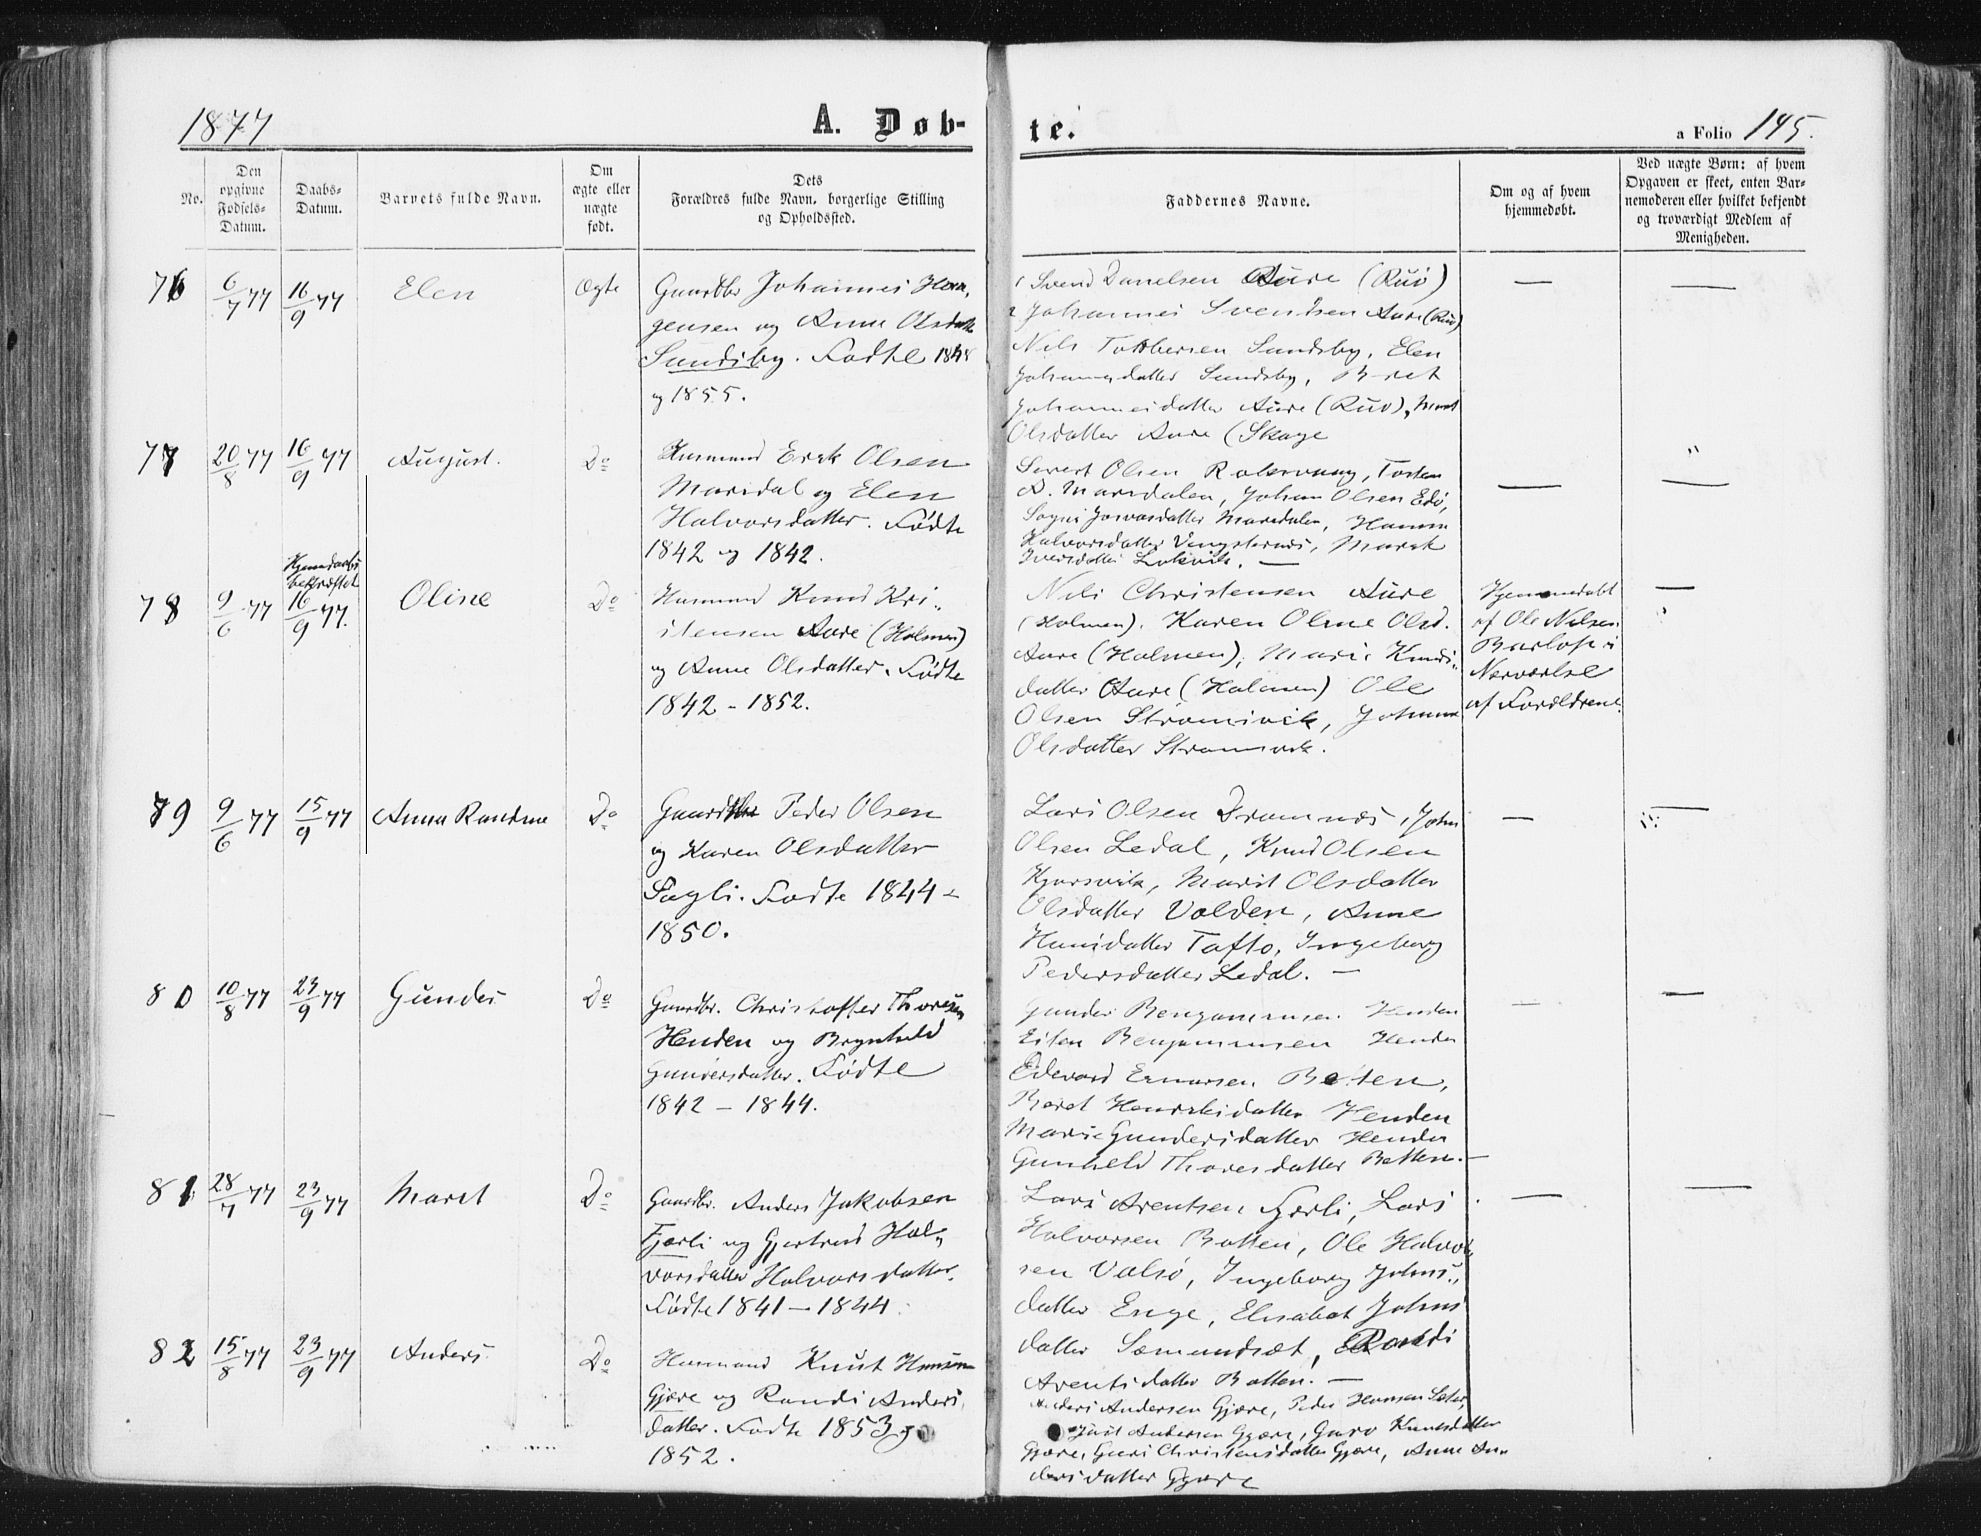 1877
A. Døb-
te.
a Folio 145.
No.
Den opgivne Fødsels-Datum.
Daabs-Datum.
Barnets fulde Navn.
Om ægte eller uægte født.
Dets
Forældres fulde Navn, borgerlige Stilling
og Opholdssted.
Faddernes Navne.
Om og af hvem
hjemmedøbt.
Ved uægte Børn: af hvem
Opgaven er skeet, enten Bar-
nemoderen eller hvilket bekjendt
og troværdigt Medlem af
Menigheden.
76 6/7 77 16/9 77 Elen Ægte
Gaardbr Johannes
gensen og Anne Olsdatt
Sundsby. Fødte 1848
og 1855.
Svend Danelsen Aure (Ruö)
Johannes Svendsen Aure (Ruö)
Nils Sundsby, Elen
Johannesdatter Sundsby, Beret
Johannesdatter Aure (Ruö), Marit
Olsdatter Aure (Skage
77 20/8 77 16/9 77 August. Do
Husmand Erik Olsen
Marsdal og Elen
Halvorsdatter. Fødte
1842 og 1842.
Sivert Olsen Tosten
O. Marsdalen, Johan Olsen Edö,
Marsdalen,
Halvorsdatter Marit
Iversdatter
78 9/6 77 Hjemmedaab bekræftet 16/9 77. Oline Do
Husmand Knud Kri-
stensen Aure (Holmen)
og Anne Olsdatter. Fødte
1842 - 1852.
Nils Christensen Aure
(Holmen). Karen Oline Olsd.
Aure (Holmen), Marie Knuds-
datter Aure (Holmen) Ole
Olsen Strömsvik, Johanna
Olsdatter Strömsvik.
Hjemmedøbt
af Ole Nilsen
i
Nærværelse
af Forældrene.
79 9/6 77 15/9 77 Anna Randine Do
Gaardbr Peder Olsen
og Karen Olsdatter
Fagli. Fødte 1844 -
1850.
Lars Olsen Dromnes, John
Olsen Ledal, Knud Olsen
Kjørsvik, Marit Olsdatter
Olsdatter Volden, Anne
Hansdatter Taftö, Ingeborg
Pedersdatter Ledal. —
80 10/8 77 23/9 77 Gunder Do
Gaardbr. Christoffer Thoresen
Henden og Brynhild
Gundersdatter. Fødte
1842 - 1844.
Gunder Benjaminsen Henden
Benjaminsen Henden
Edevard Einarsen Betten,
Beret Henriksdatter Henden
Marie Gundersdatter Henden
Gunhild Thoresdatter Betten. —
81 28/7 77 23/9 77 Marit Do
Gaardbr. Anders Jakobsen
Fjærli og Gjertrud Hal-
vorsdatter Halvorsdatter.
Fødte 1841 - 1844.
Lars Arentsen Fjærli, Lars
Halvorsen Botten, Ole Halvor
sen Valsö, Ingeborg Johns-
datter Enge, Elisabet Johns
datter Sæmundsæt, Randi
Arentsdatter Botten. —
82 15/8 77 23/9 77 Anders Do
Husmand Knut Hansen
Gjære og Randi Anders
datter. Fødte 1853 og
1852.
Anders Andersen Gjære, Peder Hansen
Andersen Gjære, Guro Knudsdatter
Gjære, Guri Christensdatter Gjære, Anne An-
dersdatter Gjære